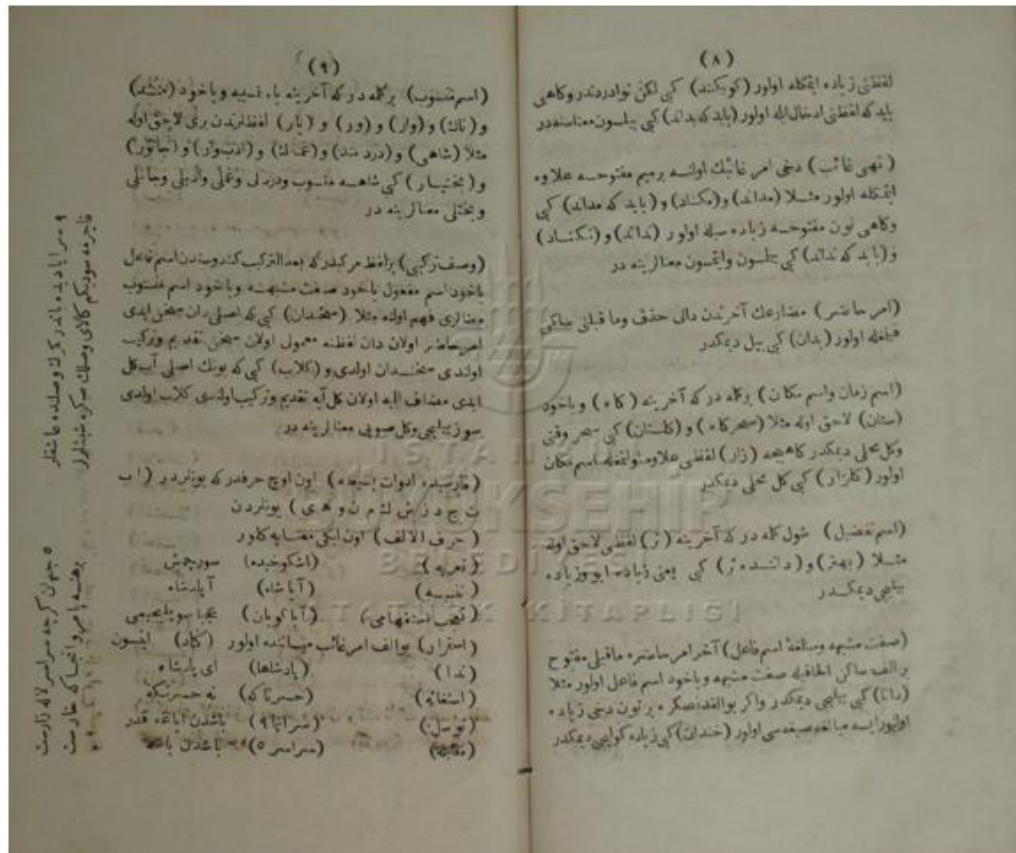 (٨)
لفظنی زیاده ایتمکله اولور (کویکند) کبی لکن نوادردندر وکاهی
باید که لفظنی ادخالله اولور (باید که بداند) کبی بیلسون معناسنه در
(نهی غائب) دخی امر غائبك اولنه برمیم مفتوحه علاوه
ایتمکله اولور مثلا (مداند) و (مکناد) و (باید که مداند) کبی
وکاهی نون مفتوحه زیاده سیله اولور (نداند) و (نکناد)
و (باید که نداند) کبی بیلسون وایتمسون معنالرینه در
(امر حاضر) مضارعك آخرندن دالی حذف وما قبلنی ساکن
قیلمغله اولور (بدان) کبی بیل دیمکدر
(اسم زمان واسم مکان) برکلمه در که آخرینه (کاه) ویاخود
(ستان) لاحق اوله مثلا (سحرکاه) و (کلستان) کبی سحر وقتی
وکل محلی دیمکدر کاهیجه (زار) لفظی علاوه اولنمغله اسم مکان
اولور (کلزار) کبی کل محلی دیمکدر
(اسم تفضیل) شول کلمه در که آخرینه (تر) لفظی لاحق اوله
مثلا (بهتر) و (داننده تر) کبی یعنی زیاده ایو وزیاده
بیلیجی دیمکدر
(صفت مشبهه ومبالغهٔ اسم فاعل) آخر امر حاضره ماقبلی مفتوح
بر الف ساکن الحاقیله صفت مشبهه ویاخود اسم فاعل اولور مثلا
(دانا) کبی بیلیجی دیمکدر واکر بو الفدنصکره بر نون دخی زیاده
اولنورایسه مبالغه صیغه سی اولور (خندان) کبی زیاده کولیجی دیمکدر
(٩)
(اسم منسوب) برکلمه در که آخرینه یاء نسبیه ویاخود (مند)
و (ناك) و (وار) و (ور) و (یار) لفظلرندن بری لاحق اوله
مثلا (شاهی) و (دردمند) و (غمناك) و (ادبوار) و (جانور)
و (بختیار) کبی شاهه منسوب ودردلی وغملی وادبلی وجانلی
وبختلی معنالرینه در
(وصف ترکیبی) برلفظ مرکبدر که بعد الترکیب کندوسندن اسم فاعل
یاخود اسم مفعول یاخود صفت مشبهه ویاخود اسم منسوب
معنالری فهم اولنه مثلا (سخندان) کبی که اصلی دان سخن ایدی
امر حاضر اولان دان لفظنه معمول اولان سخن تقدیم وترکیب
اولندی سخندان اولدی و (کلاب) کبی که بونك اصلی آب کل
ایدی مضاف الیه اولان کل آبه تقدیم وترکیب اولندی کلاب اولدی
سوز بیلیجی وکل صویی معنالرینه در
(فارسیده ادوات بسیطه) اون اوچ حرفدر که بونلردر (ا ب
ت چ د ز ش ك م ن و ه ی) بونلردن
(حرف الالف) اون ایکی معنایه کلور
(تعریه) (اشکوخیده) سورچمش
(آیا شاه) آیا پادشاه
(تعجب استفهامی) (آیا کویان) عجبا سویلییجیمی
(استقرار) بو الف امر غائب میاننده اولور (کناد) ایتسون
(ندا) (پادشاها) ای پادشاه
(استغاثه) (حسرتا که) نه حسرتکه
(توسل) (سراپا ٩) باشدن ایاغه قدر
(مقابله) (سراسر ٥) باشدن باشه
٥ جهان کرچه سراسر لاله زارست
٩ سراپا دیده